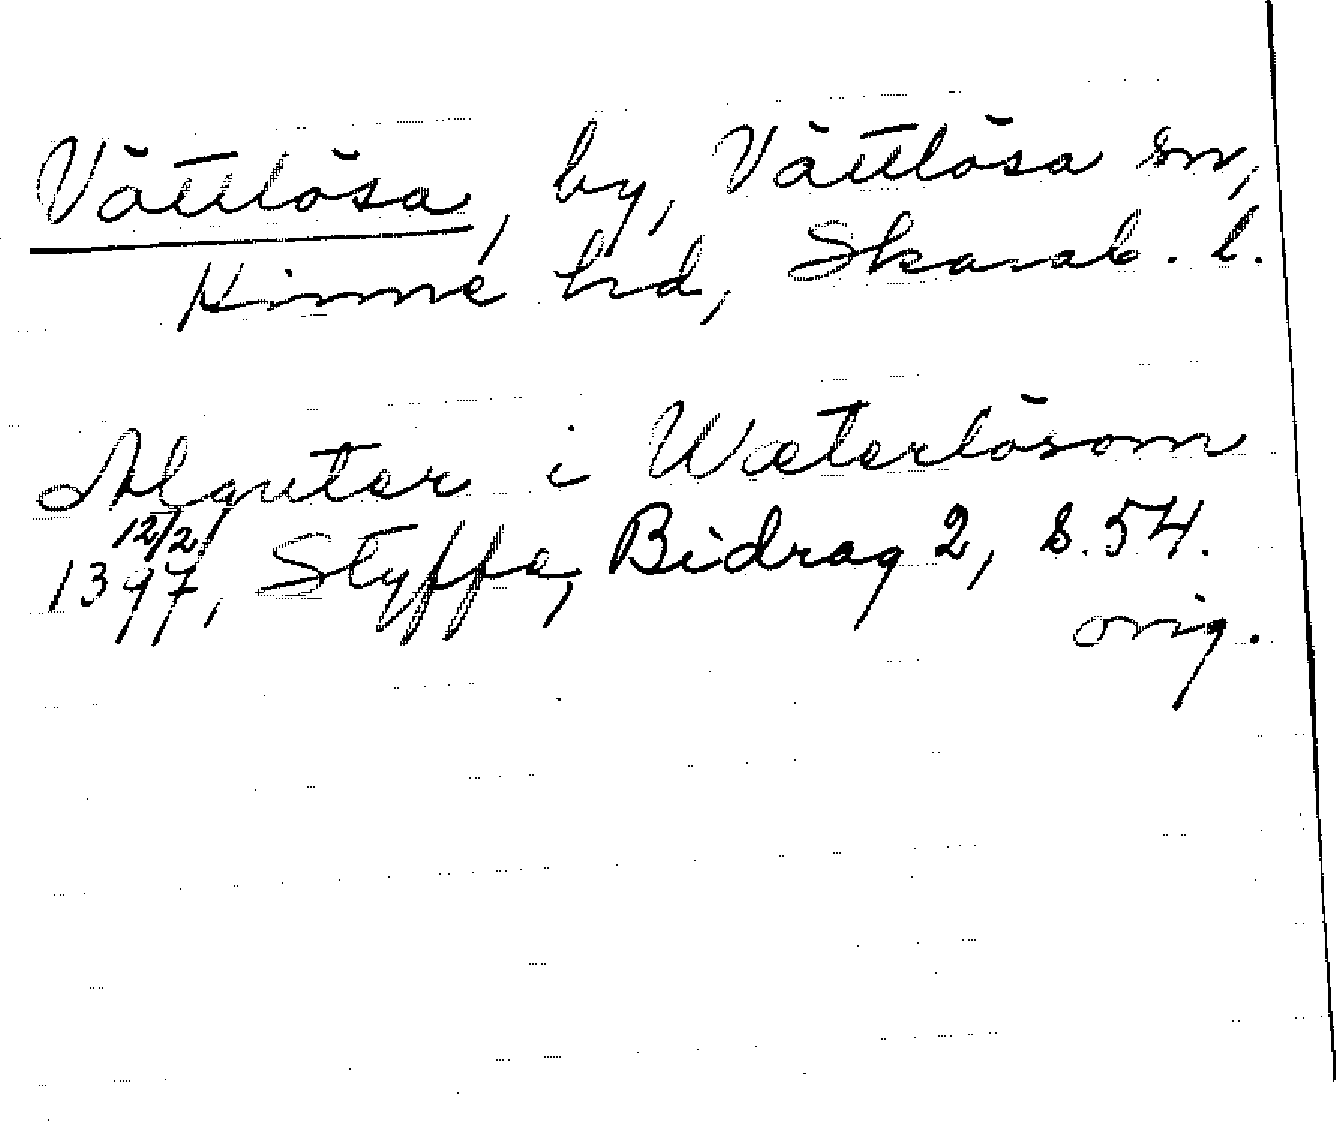 Vättlösa, by, Vättlösa sn,
Kinne hd, Skarab. l.
Alguter i Wæterlösom
12/2
1397, Styffe, Bidrag 2, s. 54.
orig.